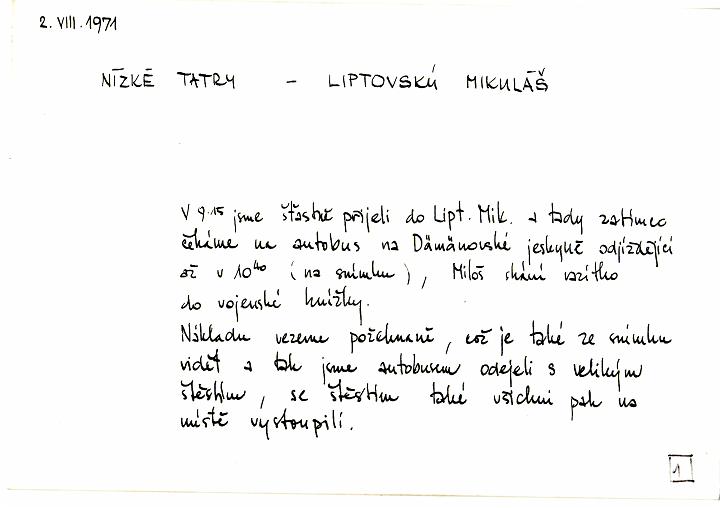 2. VIII. 1971
NÍZKÉ TATRY - LIPTOVSKÝ MIKULÁŠ
V 9.15 jsme šťastně přijeli do Lipt. Mik. a tady zatímco
čekáme na autobus na Dämänovské jeskyně odjíždějící
až v 10⁴⁰ (na snímku), Miloš shání razítko
do vojenské knížky.
Nákladu vezeme požehnaně, což je také ze snímku
vidět a tak jsme autobusem odejeli s velikým
štěstím, se štěstím také všichni pak na
místě vystoupili.
1